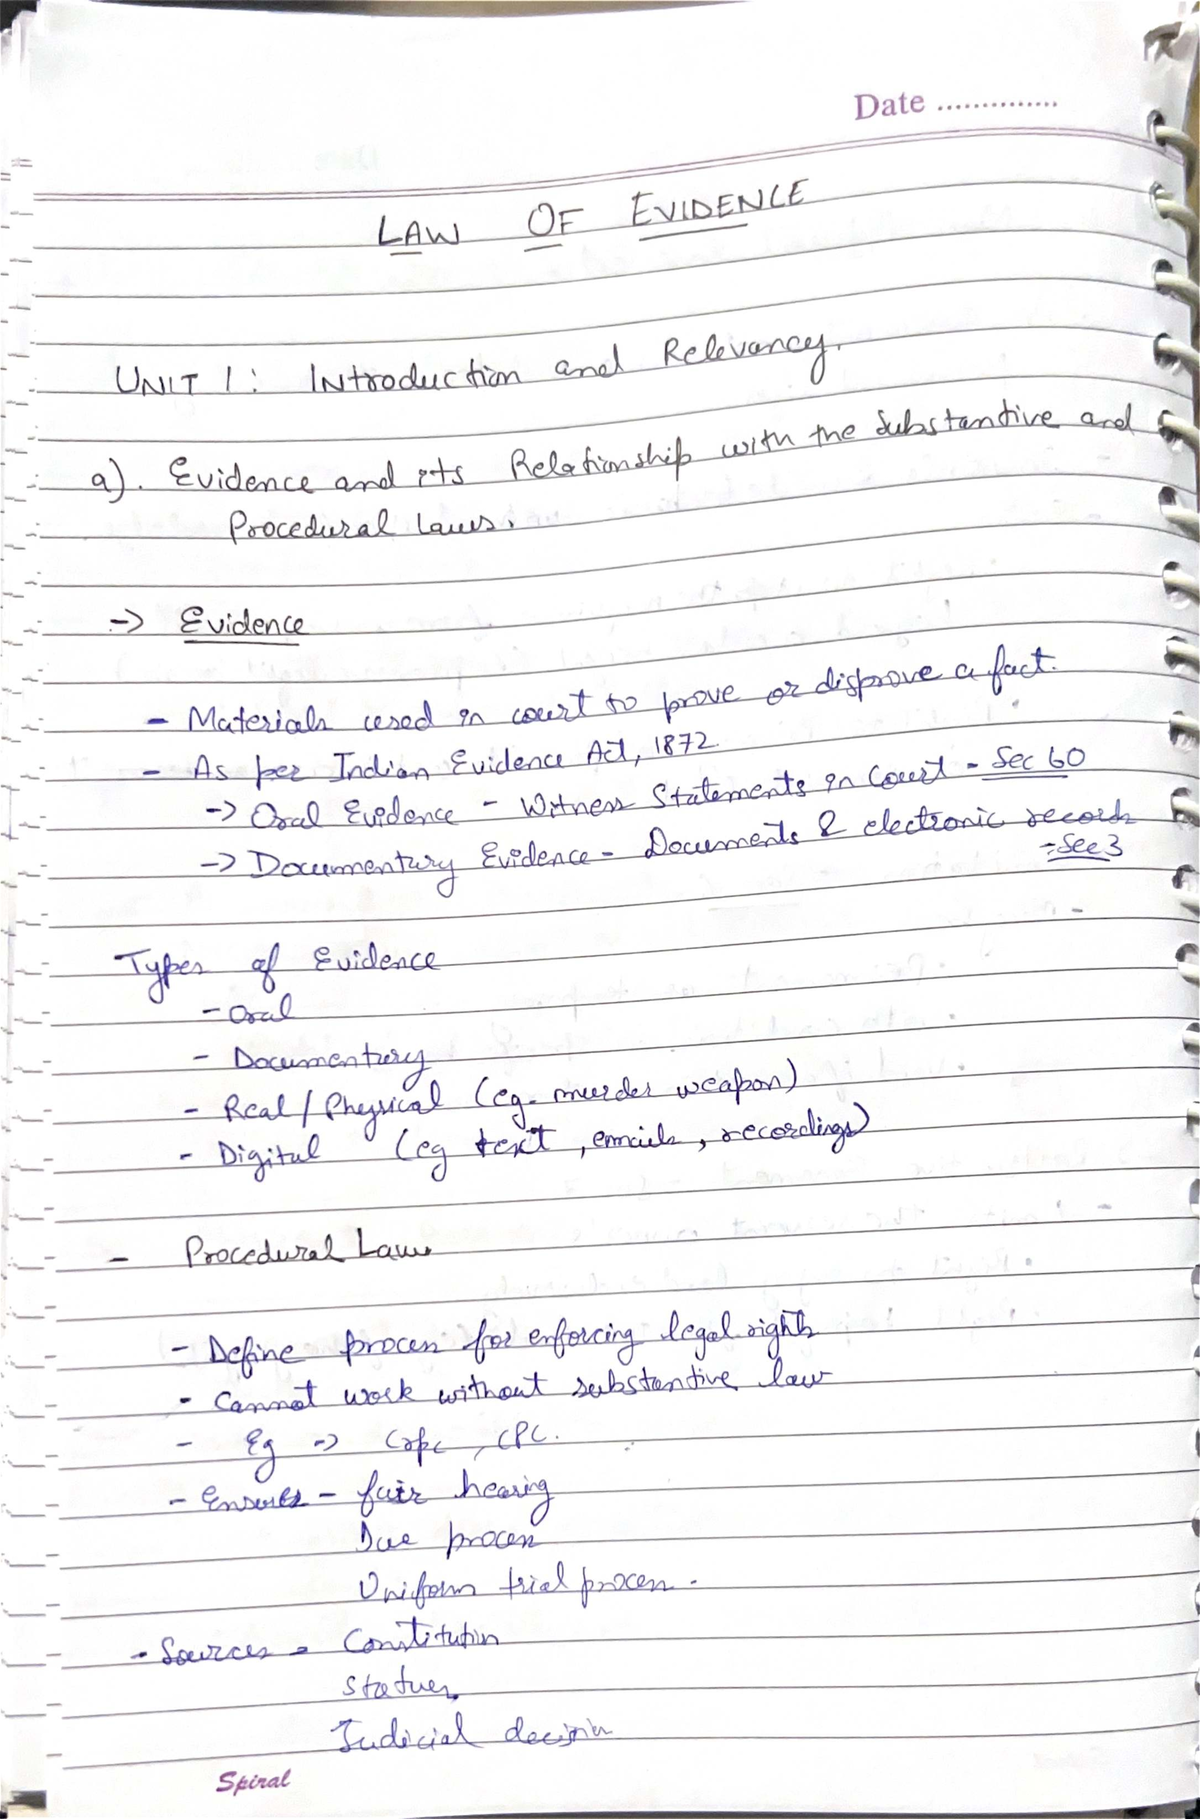 Date ..............
LAW OF EVIDENCE
UNIT 1: Introduction and Relevancy.
a). Evidence and its Relationship with the Substantive and
Procedural Laws.
-> Evidence
- Materials used in court to prove or disprove a fact.
- As per Indian Evidence Act, 1872.
-> Oral Evidence - Witness Statements in Court - Sec 60
-> Documentary Evidence - Documents & electronic records
- Sec 3
Types of Evidence
- Oral
- Documentary
- Real / Physical (eg. murder weapon)
- Digital (eg text, emails, recordings)
- Procedural Laws
- Define process for enforcing legal rights
- Cannot work without substantive law
- Eg -> Crpc, CPC.
- Ensures - fair hearing
Due process
Uniform trial process.
- Sources - Constitution
Statues
Judicial decision
Spiral